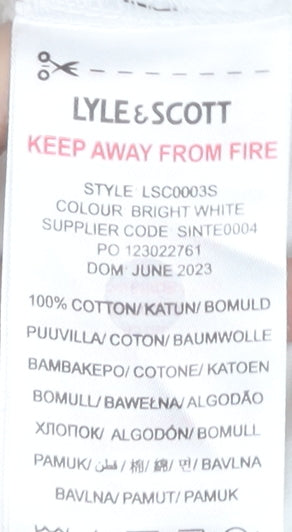 LYLE & SCOTT
KEEP AWAY FROM FIRE
STYLE LSC0003S
COLOUR BRIGHT WHITE
SUPPLIER CODE SINTE0004
PO 123022761
DOM JUNE 2023
100% COTTON/ KATUN/ BOMULD
PUUVILLA/ COTON/ BAUMWOLLE
ΒΑΜΒΑΚΕΡΟ/ COTONE/ KATOEN
BOMULL/ BAWEŁNA/ ALGODÃO
ХЛОПОК/ ALGODÓN/ BOMULL
PAMUK/ قطن / 棉/ 綿/ 면/ BAVLNA
BAVLNA/ PAMUT/ PAMUK